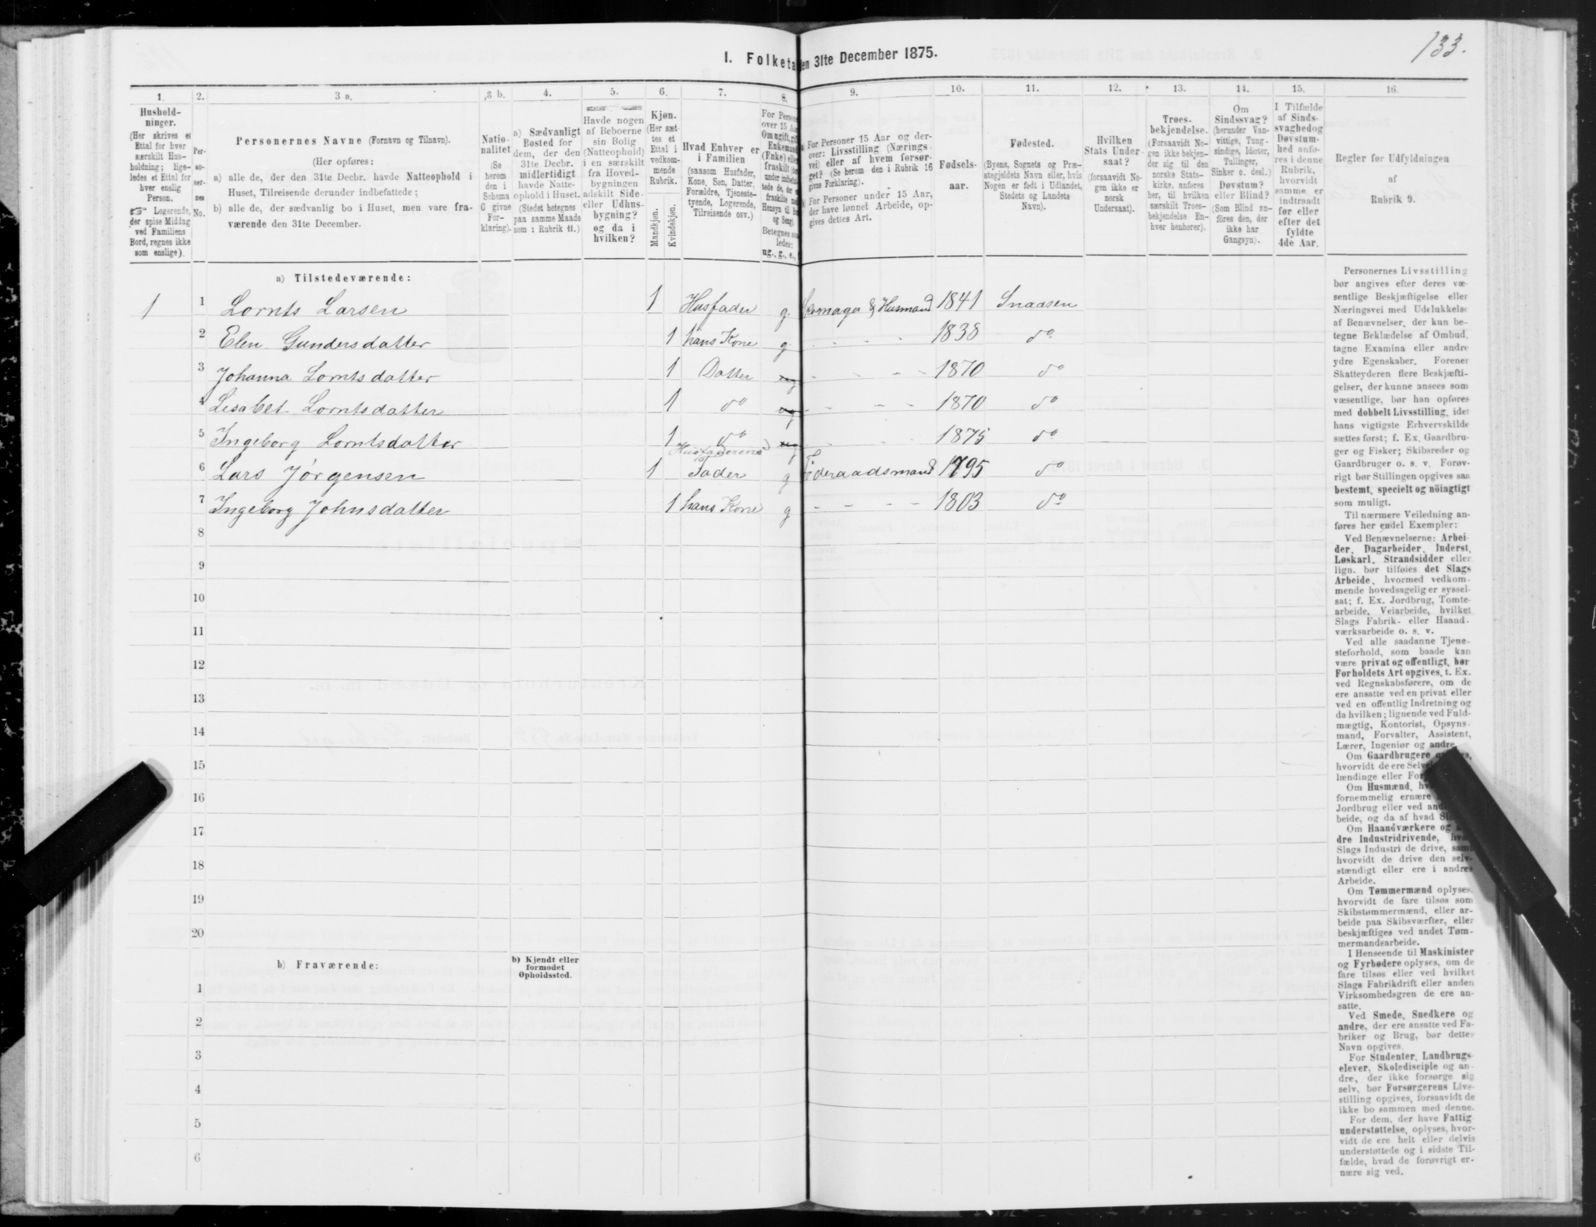 133.
I. Folketa en 31te December 1875.
1. 2. 3 a. 3 b. 4. 5. 6. 7. 8. 9. 10. 11. 12. 13. 14. 15. 16.
Hushold-
ninger.
(Her skrives et
Ettal for hver
særskilt Hus-
holdning; lige-
ledes et Ettal for
hver enslig
Person.
Logerende,
der spise Middag
ved Familiens
Bord, regnes ikke
som enslige).
Per-
so-
ner-
nes
No.
Personernes Navne (Fornavn og Tilnavn).
(Her opføres:
a) alle de, der den 31te Decbr. havde Natteophold i
Huset, Tilreisende derunder indbefattede;
b) alle de, der sædvanlig bo i Huset, men vare fra-
værende den 31te December.
Natio-
nalitet
(Se
herom
den i
Schema
G givne
For-
klaring).
a) Sædvanligt
Bosted for
dem, der den
31te Decbr.
midlertidigt
havde Natte-
ophold i Huset.
(Stedet betegnes
paa samme Maade
som i Rubrik 11.)
Havde nogen
af Beboerne
sin Bolig
(Natteophold)
i en særskilt
fra Hoved-
bygningen
adskilt Side-
eller Udhus-
bygning?
og da i
hvilken?
Kjøn.
(Her sæt-
tes et
Ettal i
vedkom-
mende
Rubrik.
Mandkjøn.
Kvindekjøn.
Hvad Enhver er
i Familien
(saasom Husfader,
Kone, Søn, Datter,
Forældre, Tjeneste-
tyende, Logerende,
Tilreisende osv.)
For Personer 15 Aar og der-
over: Livsstilling (Nærings-
vei) eller af hvem forsør-
get? (Se herom den i Rubrik 16
givne Forklaring).
For Personer under 15 Aar,
der have lønnet Arbeide, op-
gives dettes Art.
Fødsels-
aar.
Fødested.
(Byens, Sognets og Præ-
stegjeldets Navn eller, hvis
Nogen er født i Udlandet,
Stedets og Landets
Navn).
Hvilken
Stats Under-
saat?
(forsaavidt No-
gen ikke er
norsk
Undersaat).
Troes-
bekjendelse.
(Forsaavidt No-
gen ikke bekjen-
der sig til den
norske Stats-
kirke, anføres
her, til hvilken
særskilt Troes-
bekjendelse En-
hver henhører).
Om
Sindssvag?
(herunder Van-
vittige, Tung-
sindige, Idioter,
Tullinger,
Sinker o. desl.)
Døvstum?
eller Blind?
(Som Blind an-
føres den, der
ikke har
Gangsyn).
I Tilfælde
af Sinds-
svaghed og
Døvstum-
hed anfø-
res i denne
Rubrik,
hvorvidt
samme er
indtraadt
før eller
efter det
fyldte
4de Aar.
Regler for Udfyldningen
af
Rubrik 9.
a) Tilstedeværende:
1 1 Lornts Larsen 1 Husfader g. Skomager & Husmand 1841 Snaasen
2 Elen Gundersdatter 1 hans Kone g 1838 do
3 Johanna Lorntsdatter 1 Datter ug 1870 do
4 Lisabet Lorntsdatter 1 do ug 1870 do
5 Ingeborg Lorntsdatter 1 do ug 1875 do
6 Lars Jørgensen 1 Husfaderens Fader g Föderaadsmand 1795 do
7 Ingeborg Johnsdatter 1 hans Kone g 1803 do
8
9
10
11
12
13
14
15
16
17
18
19
20
b) Fraværende:
b) Kjendt eller
formodet
Opholdssted.
1
2
3
4
5
6
Personernes Livsstilling
bør angives efter deres væ-
sentlige Beskjæftigelse eller
Næringsvei med Udelukkelse
af Benævnelser, der kun be-
tegne Beklædelse af Ombud,
tagne Examina eller andre
ydre Egenskaber. Forener
Skatteyderen flere Beskjæfti-
gelser, der kunne ansees som
væsentlige, bør han opføres
med dobbelt Livsstilling, idet
hans vigtigste Erhvervskilde
sættes først; f. Ex. Gaardbru-
ger og Fisker; Skibsreder og
Gaardbruger o. s. v. Forøv-
rigt bør Stillingen opgives saa
bestemt, specielt og nøiagtigt
som muligt.
Til nærmere Veiledning an-
føres her endel Exempler:
Ved Benævnelserne: Arbei-
der, Dagarbeider, Inderst,
Løskarl, Strandsidder eller
lign. bør tilføies det Slags
Arbeide, hvormed vedkom-
mende hovedsagelig er syssel-
sat; f. Ex. Jordbrug, Tomte-
arbeide, Veiarbeide, hvilket
Slags Fabrik- eller Haand-
værksarbeide o. s. v.
Ved alle saadanne Tjene-
steforhold, som baade kan
være privat og offentligt, bør
Forholdets Art opgives, t. Ex.
ved Regnskabsførere, om de
ere ansatte ved en privat eller
ved en offentlig Indretning og
da hvilken; lignende ved Fuld-
mægtig, Kontorist, Opsyns-
mand, Forvalter, Assistent,
Lærer, Ingeniør og andre.
Om Gaardbrugere
hvorvidt de ere Sel
lændinge eller For
Om Husmænd, hv
fornemmelig ernære
Jordbrug eller ved and
beide, og da af hvad Sl
Om Haandværkere og
dre Industridrivende, hva
Slags Industri de drive, samt
hvorvidt de drive den selv-
stændigt eller ere i andres
Arbeide.
Om Tømmermænd oplyses,
hvorvidt de fare tilsøs som
Skibstømmermænd, eller ar-
beide paa Skibsværfter, eller
beskjæftiges ved andet Tøm-
mermandsarbeide.
I Henseende til Maskinister
og Fyrbødere oplyses, om de
fare tilsøs eller ved hvilket
Slags Fabrikdrift eller anden
Virksomhedsgren de ere an-
satte.
Ved Smede, Snedkere og
andre, der ere ansatte ved Fa-
briker og Brug, bør dettes
Navn opgives.
For Studenter, Landbrugs-
elever, Skoledisciple og an-
dre, der ikke forsørge sig
selv, bør Forsørgerens Livs-
stilling opgives, forsaavidt de
ikke bo sammen med denne.
For dem, der have Fattig-
understøttelse, oplyses, hvor-
vidt de ere helt eller delvis
understøttede og i sidste Til-
fælde, hvad de forøvrigt er-
nære sig ved.